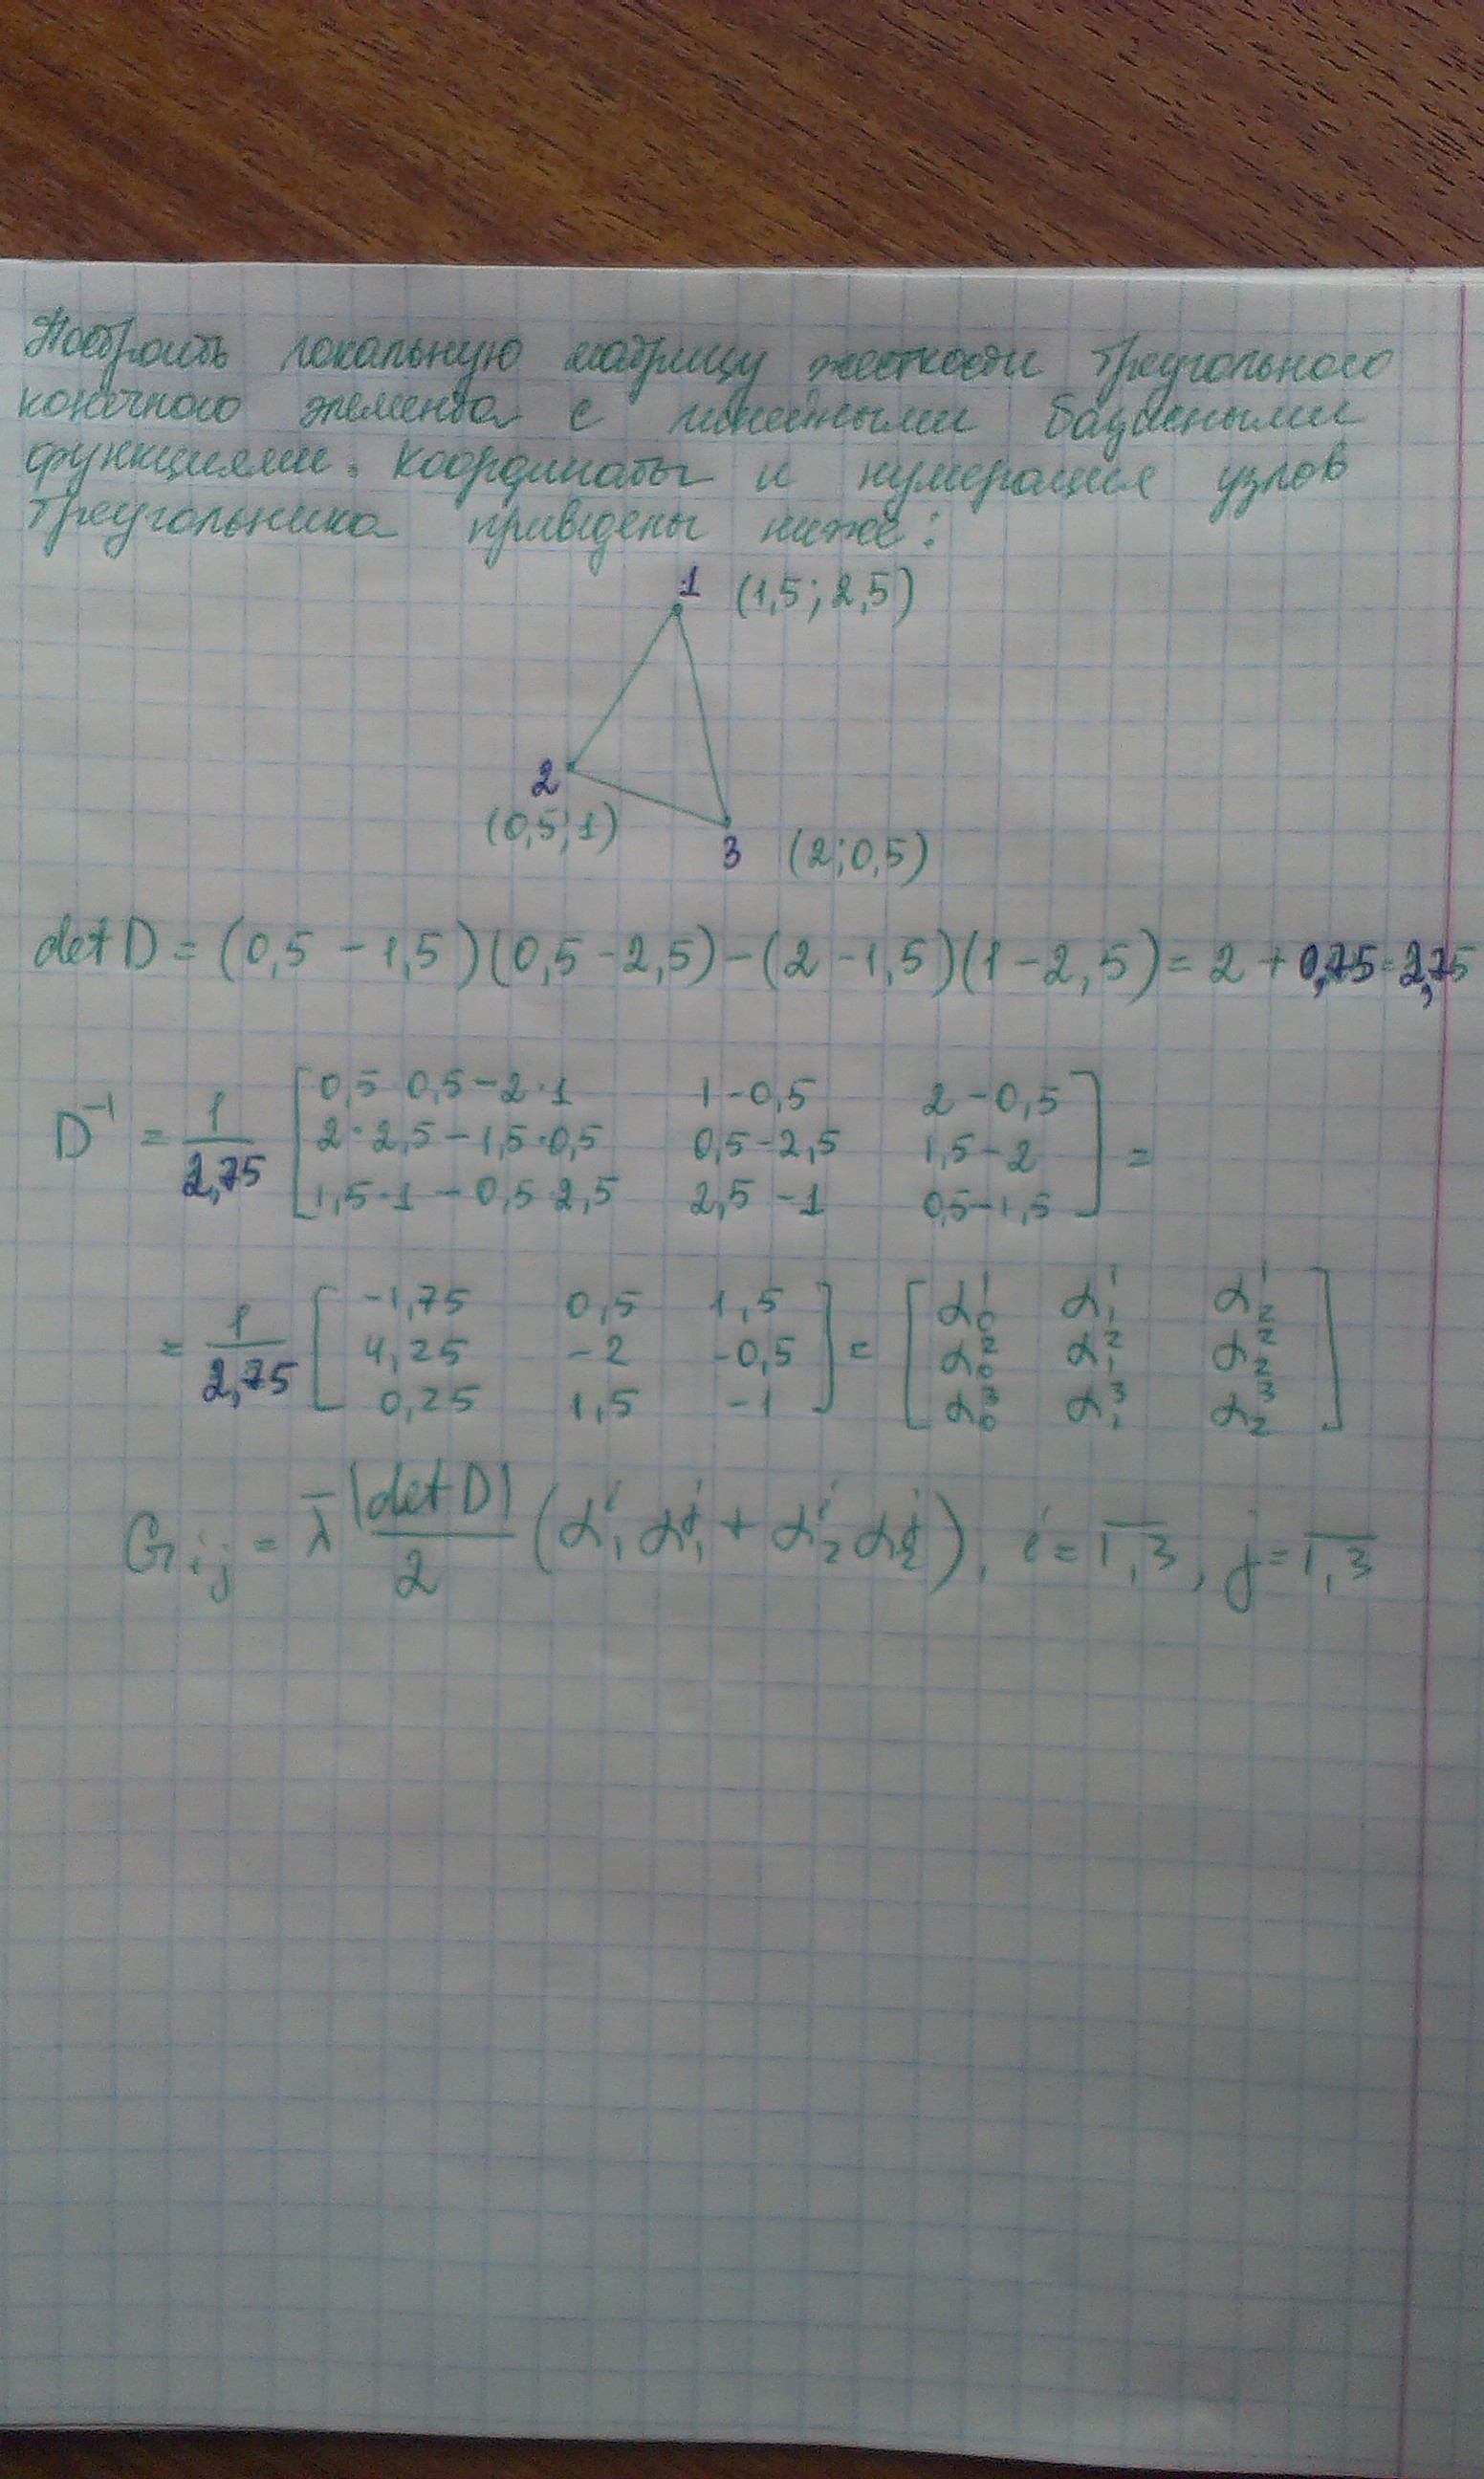 Построить локальную матрицу жесткости треугольного
конечного элемента с линейными базисными
функциями. Координаты и нумерация узлов
треугольника приведены ниже:
1 (1,5; 2,5)
2
(0,5; 1)
3 (2; 0,5)
det D = (0,5 - 1,5)(0,5 - 2,5) - (2 - 1,5)(1 - 2,5) = 2 + 0,75 = 2,75
D⁻¹ = 1/2,75 [0,5·0,5-2·1 1-0,5 2-0,5
2·2,5-1,5·0,5 0,5-2,5 1,5-2
1,5·1-0,5·2,5 2,5-1 0,5-1,5] =
= 1/2,75 [-1,75 0,5 1,5
4,25 -2 -0,5
0,25 1,5 -1] = [α₀¹ α₁¹ α₂¹
α₀² α₁² α₂²
α₀³ α₁³ α₂³]
Gᵢⱼ = λ̄ |det D|/2 (α₁ⁱ α₁ʲ + α₂ⁱ α₂ʲ), i = 1,3, j = 1,3